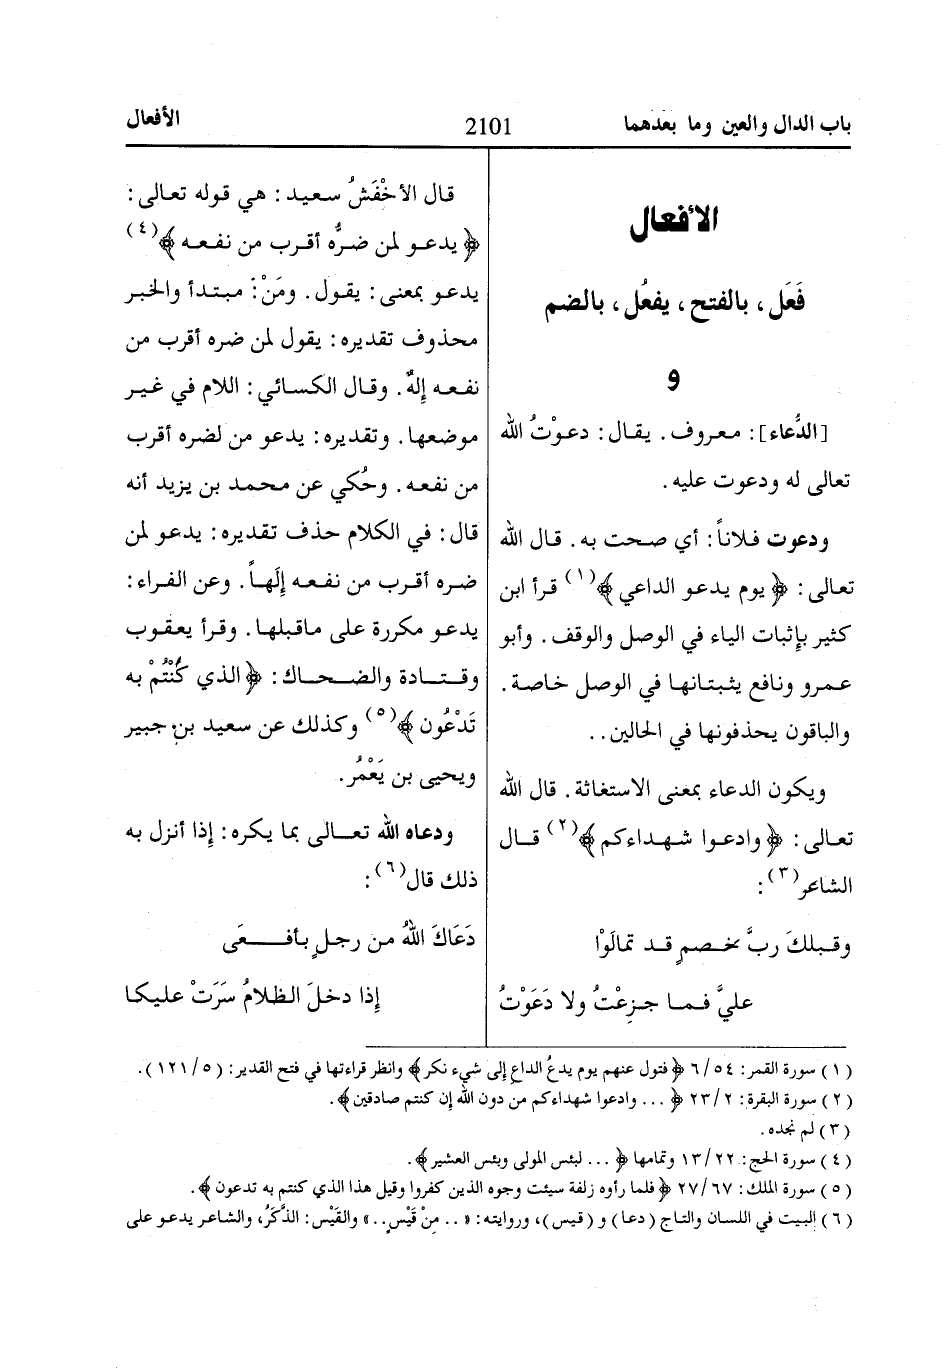 باب الدال والعين وما بعدهما
2101
الأفعال
الأفعال
فَعَل، بالفتح، يفعُل، بالضم
و
[الدُّعاء]: معروف. يقال: دعوْتُ الله
تعالى له ودعوت عليه.
ودعوت فلاناً: أي صحت به. قال الله
تعالى: ﴿يوم يدعو الداعي﴾(١) قرأ ابن
كثير بإثبات الياء في الوصل والوقف. وأبو
عمرو ونافع يثبتانها في الوصل خاصة.
والباقون يحذفونها في الحالين..
ويكون الدعاء بمعنى الاستغاثة. قال الله
تعالى: ﴿وادعوا شهداءكم﴾(٢) قال
الشاعر(٣):
وقبلكَ ربَّ خصمٍ قد تمالَوْا
عليَّ فما جزِعْتُ ولا دَعَوْتُ
قال الأخْفَشُ سعيد: هي قوله تعالى:
﴿يدعو لمن ضرُّه أقرب من نفعه﴾(٤)
يدعو بمعنى: يقول. ومَنْ: مبتدأ والخبر
محذوف تقديره: يقول لمن ضره أقرب من
نفعه إلهٌ. وقال الكسائي: اللام في غير
موضعها. وتقديره: يدعو من لضره أقرب
من نفعه. وحُكي عن محمد بن يزيد أنه
قال: في الكلام حذف تقديره: يدعو لمن
ضره أقرب من نفعه إلَهاً. وعن الفراء:
يدعو مكررة على ماقبلها. وقرأ يعقوب
وقتادة والضحاك: ﴿الذي كُنْتُمْ به
تَدْعُون﴾(٥) وكذلك عن سعيد بن جبير
ويحيى بن يَعْمُر.
ودعاه الله تعالى بما يكره: إذا أنزل به
ذلك قال(٦):
دَعَاكَ اللهُ من رجلٍ بأفعَى
إذا دخلَ الظلامُ سَرَتْ عليكا
(١) سورة القمر: ٦/٥٤ ﴿فتول عنهم يوم يدعُ الداعِ إلى شيء نكر﴾ وانظر قراءتها في فتح القدير: (١٢١/٥).
(٢) سورة البقرة: ٢٣/٢ ﴿... وادعوا شهداءكم من دون الله إن كنتم صادقين﴾.
(٣) لم نجده.
(٤) سورة الحج: ١٣/٢٢ وتمامها ﴿... لبئس المولى وبئس العشير﴾.
(٥) سورة الملك: ٢٧/٦٧ ﴿فلما رأوه زلفة سيئت وجوه الذين كفروا وقيل هذا الذي كنتم به تدعون﴾.
(٦) البيت في اللسان والتاج (دعا) و(قيس)، وروايته: «.. مِنْ قَيْسٍ..» والقَيْس: الذَّكَرُ، والشاعر يدعو على